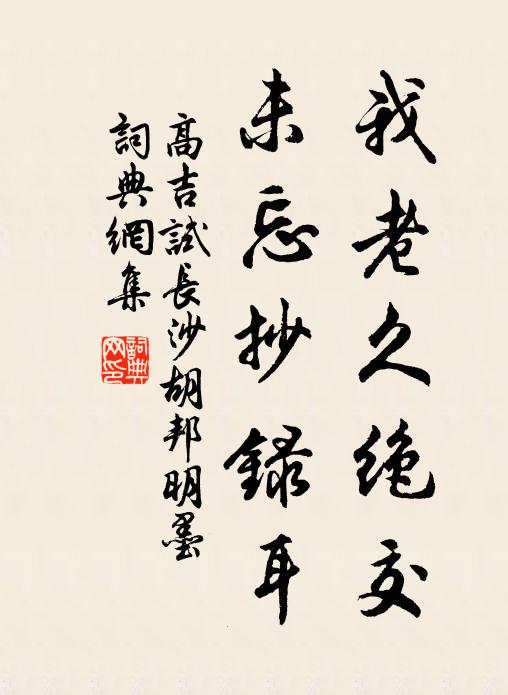 我老久絶交
未忘抄録耳
高吉試長沙胡邦明墨
詞典網集
詞典网印